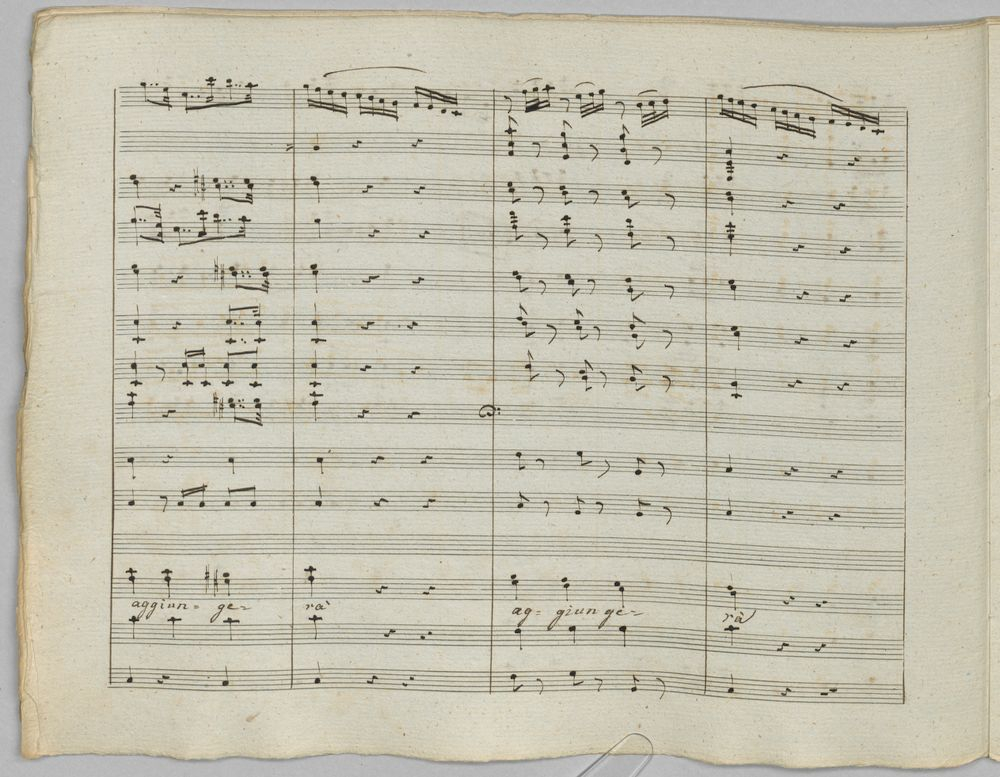 aggiun= ge= rà ag= giun ge= rà